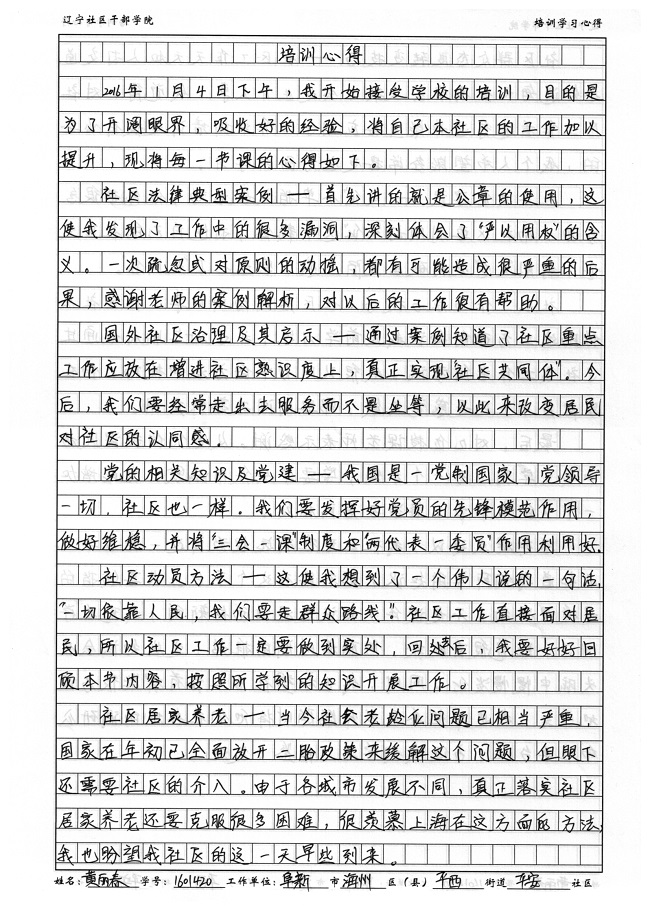 辽宁社区干部学院 培训学习心得
培训心得
2016年1月4日下午，我开始接受学校的培训，目的是
为了开阔眼界，吸收好的经验，将自己本社区的工作加以
提升，现将每一节课的心得如下。
社区法律典型案例——首先讲的就是公章的使用，这
使我发现了工作中的很多漏洞，深刻体会了"严以用权"的含
义。一次疏忽或对原则的动摇，都有可能造成很严重的后
果，感谢老师的案例解析，对以后的工作很有帮助。
国外社区治理及其启示——通过案例知道了社区重点
工作应放在增进社区熟识度上，真正实现"社区共同体"。今
后，我们要经常走出去服务而不是坐等，以此来改变居民
对社区的认同感。
党的相关知识及党建——我国是一党制国家，党领导
一切，社区也一样。我们要发挥好党员的先锋模范作用，
做好维稳，并将"三会一课"制度和"两代表一委员"作用利用好。
社区动员方法——这使我想到了一个伟人说的一句话，
"一切依靠人民，我们要走群众路线"。社区工作直接面对居
民，所以社区工作一定要做到实处，回去后，我要好好回
顾本节内容，按照所学到的知识开展工作。
社区居家养老——当今社会老龄化问题已相当严重，
国家在年初已全面放开二胎政策来缓解这个问题，但眼下
还需要社区的介入。由于各城市发展不同，真正落实社区
居家养老还要克服很多困难，很羡慕上海在这方面的方法，
我也盼望我社区的这一天早些到来。
姓名：黄丽春 学号：1601420 工作单位：阜新 市 海州 区（县） 平西 街道 平安 社区